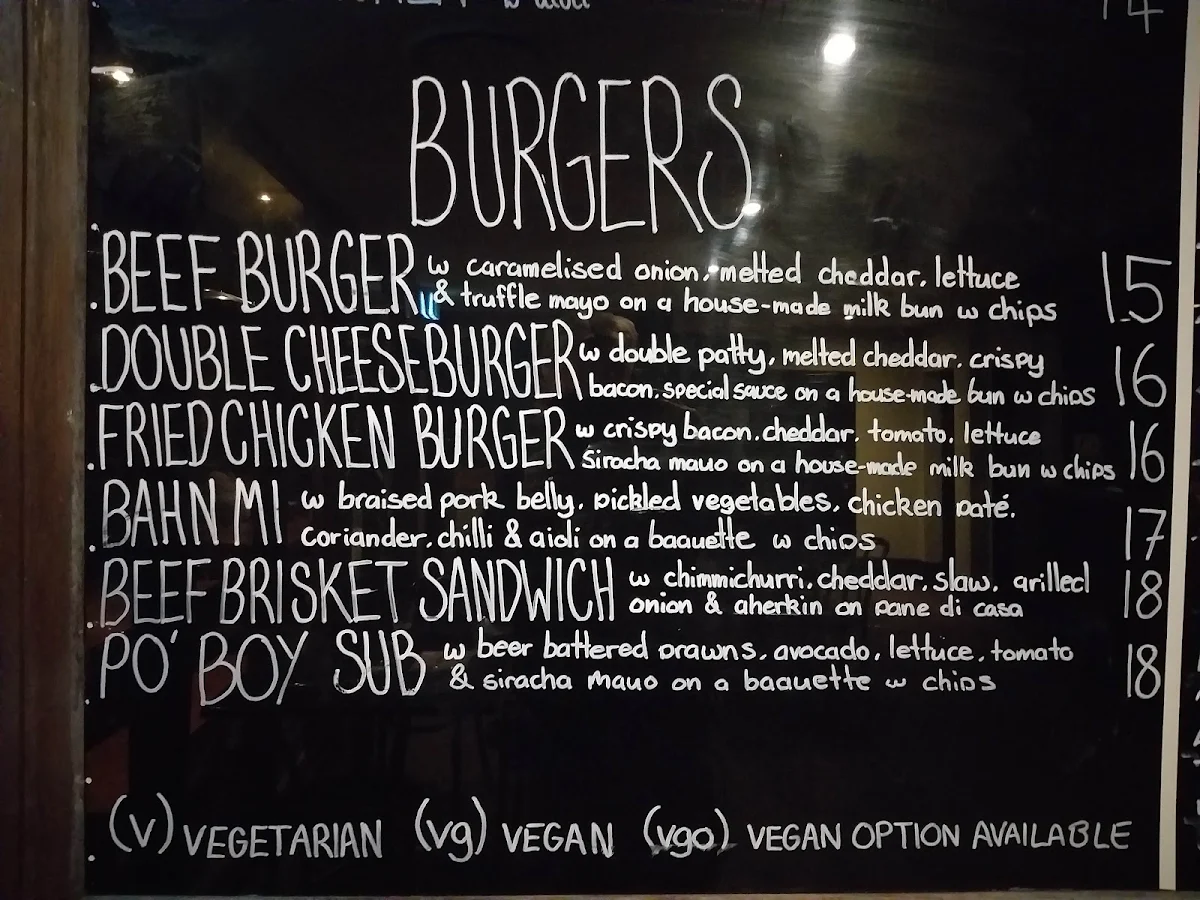 BURGERS
BEEF BURGER w caramelised onion, melted cheddar, lettuce 15
& truffle mayo on a house-made milk bun w chips
DOUBLE CHEESEBURGER w double patty, melted cheddar, crispy 16
bacon, special sauce on a house-made bun w chips
FRIED CHICKEN BURGER w crispy bacon, cheddar, tomato, lettuce 16
siracha mayo on a house-made milk bun w chips
BAHN MI w braised pork belly, pickled vegetables, chicken paté, 17
coriander, chilli & aioli on a baguette w chips
BEEF BRISKET SANDWICH w chimmichurri, cheddar, slaw, grilled 18
onion & gherkin on pane di casa
PO' BOY SUB w beer battered prawns, avocado, lettuce, tomato 18
& siracha mayo on a baguette w chips
(v) VEGETARIAN (vg) VEGAN (vgo) VEGAN OPTION AVAILABLE